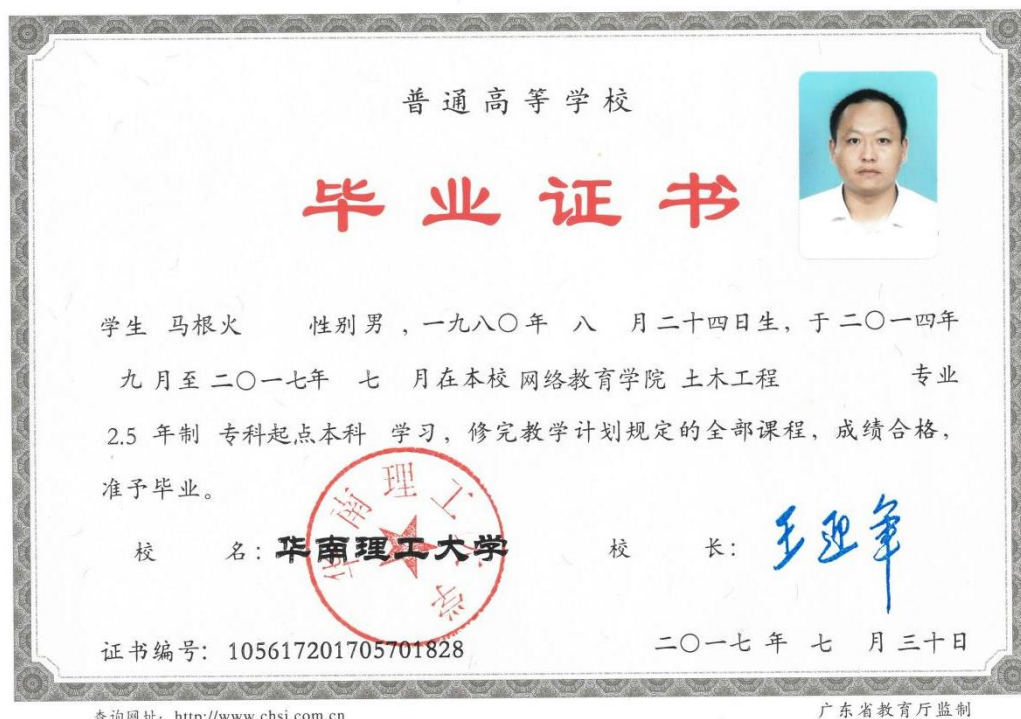 普通高等学校
毕业证书
学生 马根火 性别 男 ，一九八〇年 八 月二十四日生，于二〇一四年
九 月至二〇一七年 七 月在本校 网络教育学院 土木工程 专业
2.5 年制 专科起点本科 学习，修完教学计划规定的全部课程，成绩合格，
准予毕业。
华南理工大学
校 名：华南理工大学 校 长：王迎军
证书编号：105617201705701828 二〇一七 年 七 月三十日
查询网址：http://www.chsi.com.cn 广东省教育厅监制